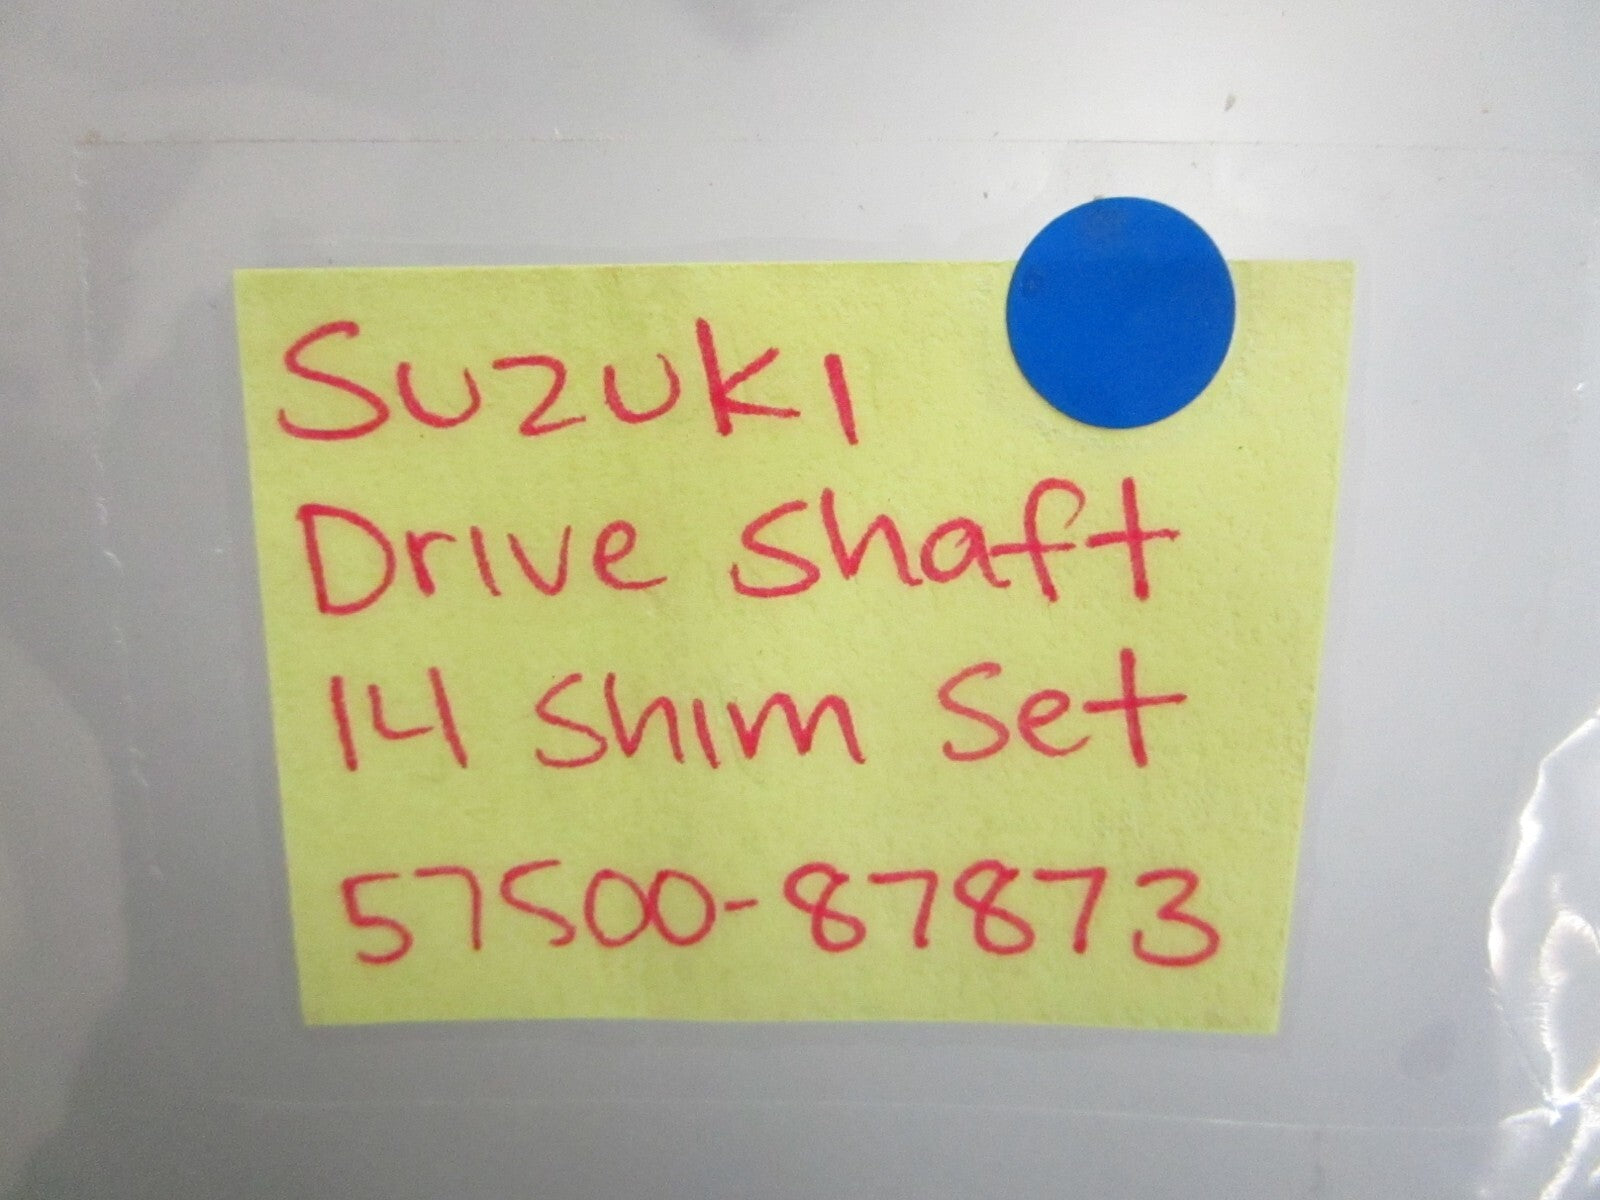 Suzuki
Drive shaft
14 shim set
57500-87873